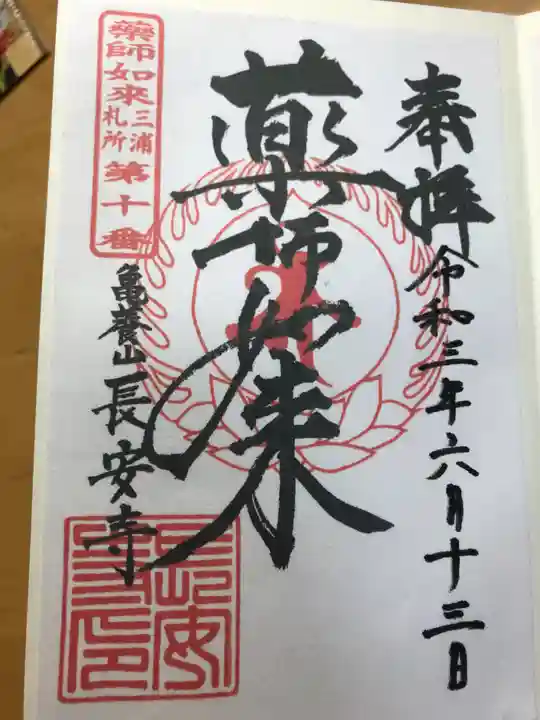 奉拝
令和三年六月十三日
薬師如来
藥師如來
三浦
札所
第十番
亀養山長安寺
長安寺印